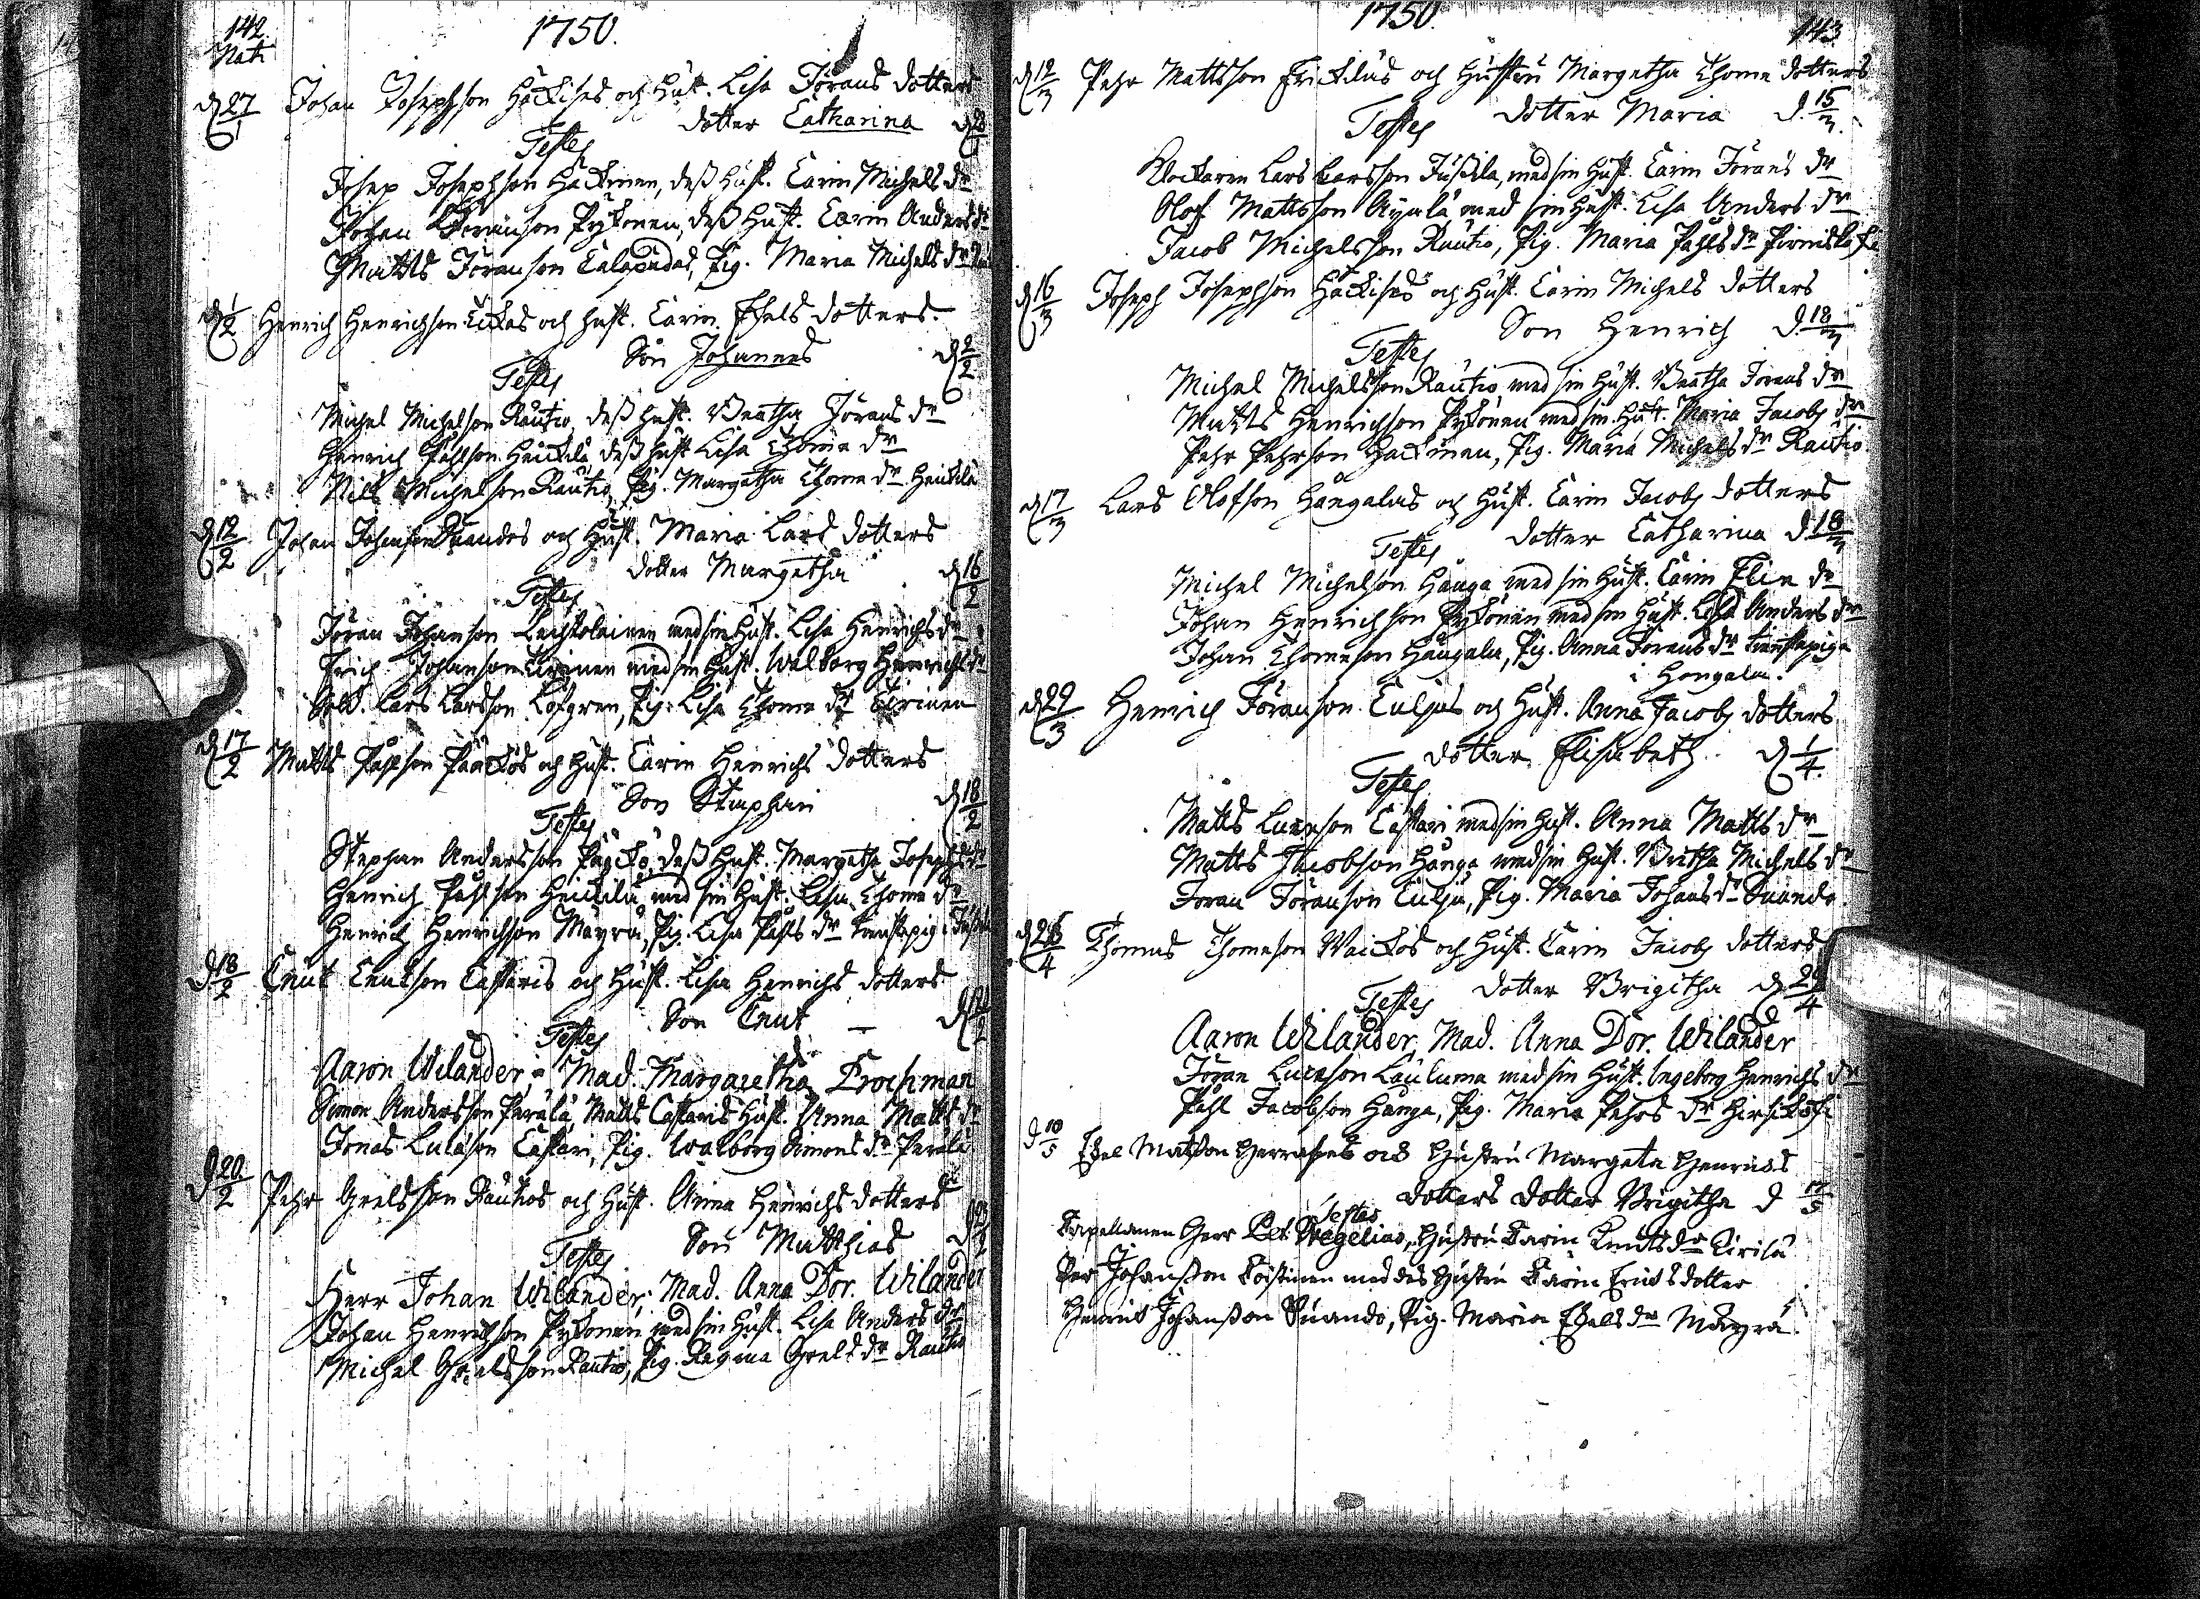 142.
1750.
Nati
d 27/1 Johan Josephson Häckises och Hust. Lisa Jörans dotters
dotter Catharina d
Testes
Josep Josephson Häckinen, dess Hust. Carin Michels dr
Johan Pykonen, dess Hust. Carin Anders dr
Matts Joranson, Pig. Maria Michels dr
d 1/2 Henrich Henrichson och hust. Carin Eskels dotters
Son Johannes d 2/2
Testes
Michel Michelson Rautio, dess hust. Beatha Jörans dr
Henrich Påhlson Heickilä dess hust Lisa Thome dr
Nils Michelson Rautio, Pig. Margetha Thome dr Heickilä
d 12/2 Johan Johanson Suandos och Hust. Maria Lars dotters
dotter Margetha d 16/2
Testes
Jöran Johanson med sin Hust. Lisa Henrichs dr
Erich Johanson med sin Hust. Walborg Henrichs dr
Sold. Lars Larsson Löfgren, Pig. Lisa Thome dr
d 17/2 Matts Påhlson Pääckös och hust. Carin Henrichs dotters
Son Staphan d 18/2
Testes
Stephan Andersson Pääckö, dess Hust. Margetha Josephs dr
Henrich Påhlson Heickilä, med sin Hust. Lisa Thome dr
Henrich Henrichson Mäyrä, Pig. Lisa Påhls dr tienstepig i
d 18/2 Cnut Cnutson Castaris och Hust. Lisa Henrichs dotters
Son Cnut d
Testes
Aaron Wilander, Mad. Margaretha Frosman
Simon Andersson Perälä, Matts Castaris Hust. Anna Matts dr
Jonas Lucason Castari, Pig. Walborg Simons dr Perälä
d 20/2 Pehr Grelsson Rautios och Hust. Anna Henrichs dotters
Son Matthias d
Testes
Herr Johan Wilander, Mad. Anna Dor. Wilander
Johan Henrichson Pykönen med sin Hust. Lisa Anders dr
Michel Grelsson Rautio, Pig. Regina Grels dr Rautio
1750.
143
d 12/3 Pehr Mattsson Erickilas och Hustru Margetha Thome dotters
dotter Maria d. 15/3
Testes
Klockaren Lars Larsson Jussila, med sin Hust. Carin Jörans dr
Olof Mattsson Äyälä med sin Hust. Lisa Anders dr
Jacob Michelsson Rautio, Pig. Maria Påhls dr
d 16/3 Joseph Josephson Häckises och Hust. Carin Michels dotters
Son Henrich d. 18/3
Testes
Michel Michelsson Rautio med sin Hust. Beatha Jorans dr
Matts Henrichson Pykönen med sin Hust. Maria Jacobs dr
Pehr Pehrson Hackinen, Pig. Maria Michels dr Rautio
d 17/3 Lars Olofson Hangalas och Hust. Carin Jacobs dotters
dotter Catharina d 18/3
Testes
Michel Michelson Hanga med sin Hust. Carin Elie dr
Johan Henrichson Pykönen med sin Hust. Lisa Anders dr
Johan Thomeson Hangala, Pig. Anna Jorans dr tienstepiga
i Hongala.
d 29/3 Henrich Jöranson Culjus och Hust. Anna Jacobs dotters
dotter Elisabeth d 1/4
Testes
Matts Lucason Castari med sin Hust. Anna Matts dr
Matts Jacobson Hanga med sin Hust. Britha Michels dr
Joran Joranson Culju, Pig. Maria Johans dr Suando
d 4 Thomas Thomeson Waickos och Hust. Carin Jacobs dotters
dotter Brigitha d 29/4
Testes
Aaron Wilander, Mad. Anna Dor. Wilander
Jöran Lucason Lauluma med sin Hust. Ingeborg Henrichs dr
Påhl Jacobson Hanga, Pig. Maria Pehrs dr
d 10/5 Eskel Matsson och Hustru Margeta Henrics
dotters dotter Brigitha d 12/5
Testes
Capellanen Herr Pet. Wegelius, Hustru Karin Knuts dr
Per Johansson med des Hustru Karin Erics dotter
Henric Johansson Suando, Pig. Maria Eskels dr Mäyrä.